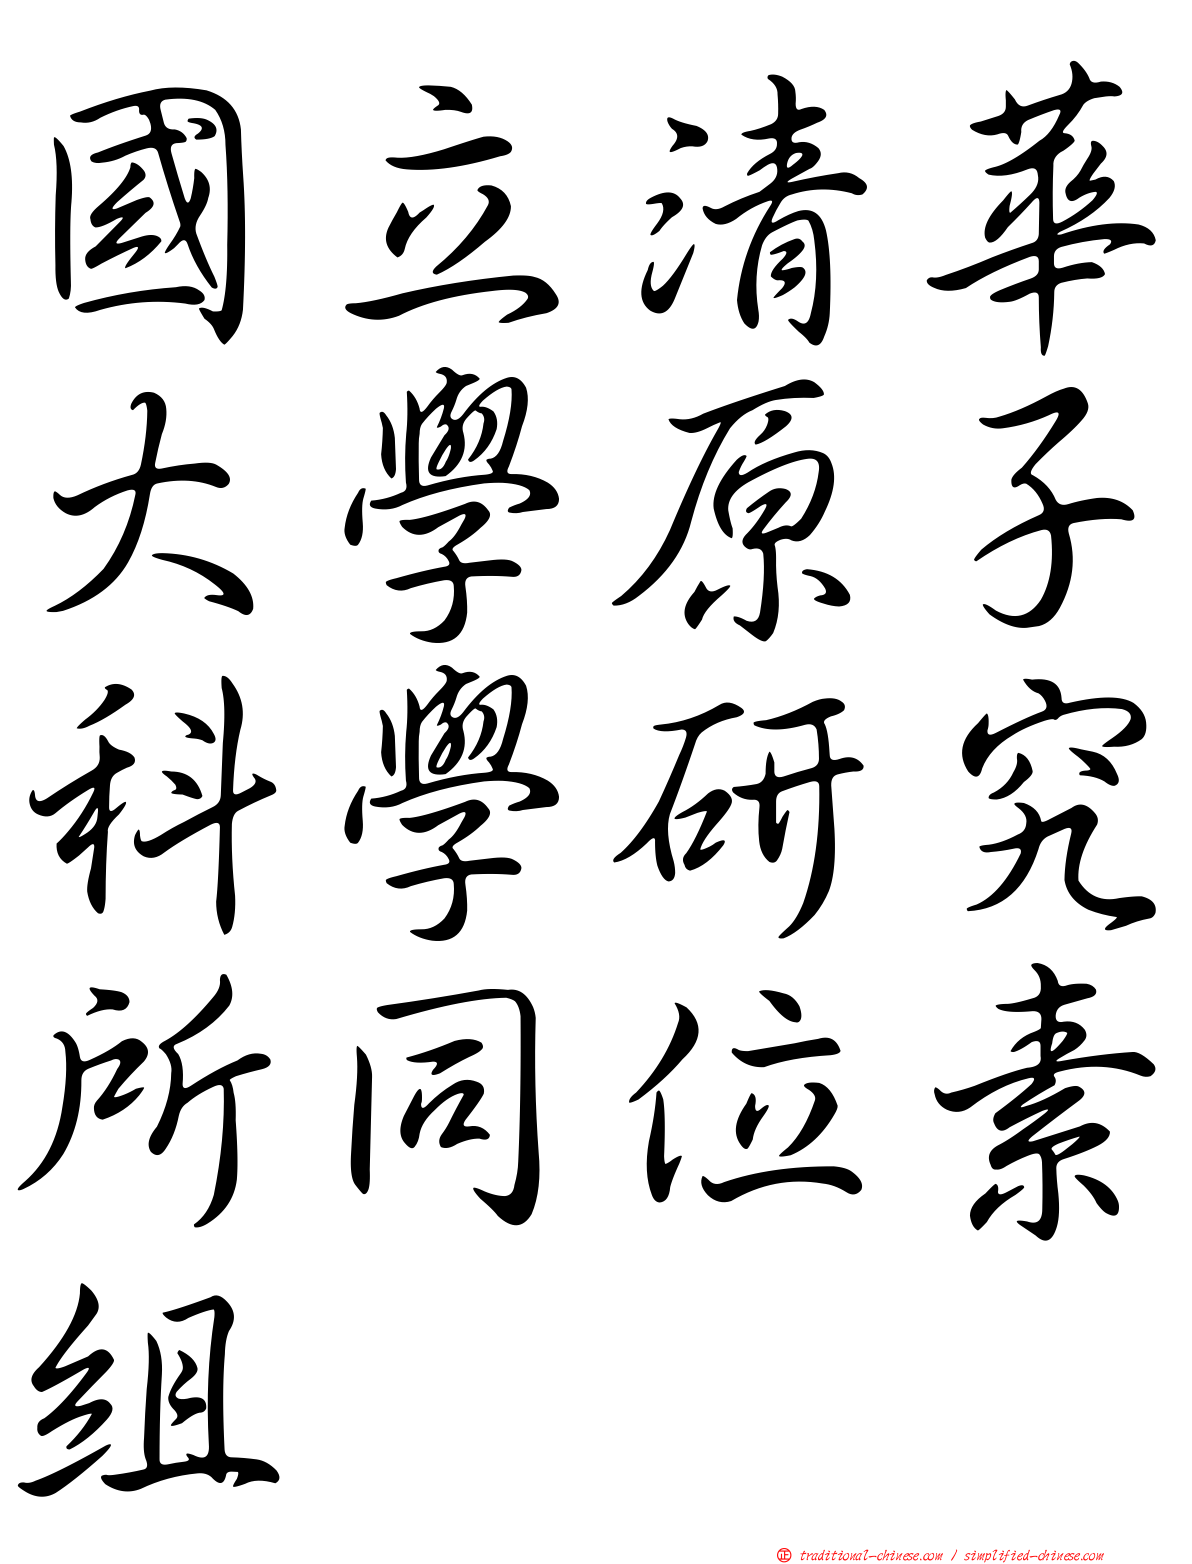 國立清華
大學原子
科學研究
所同位素
組
㊣ traditional-chinese.com / simplified-chinese.com